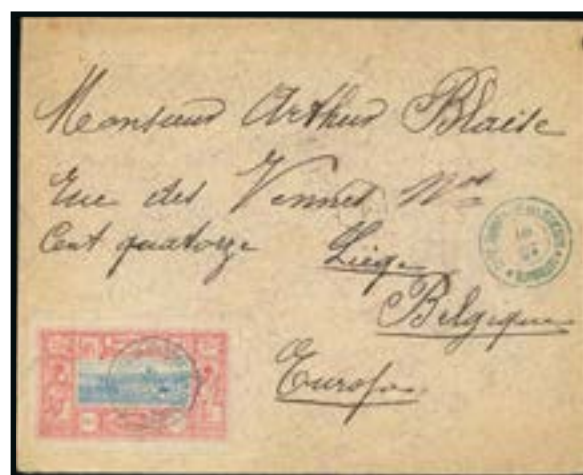 Monsieur Arthur Blaise
Rue des Vennes No
Cent quatorze Liège
Belgique
Europe